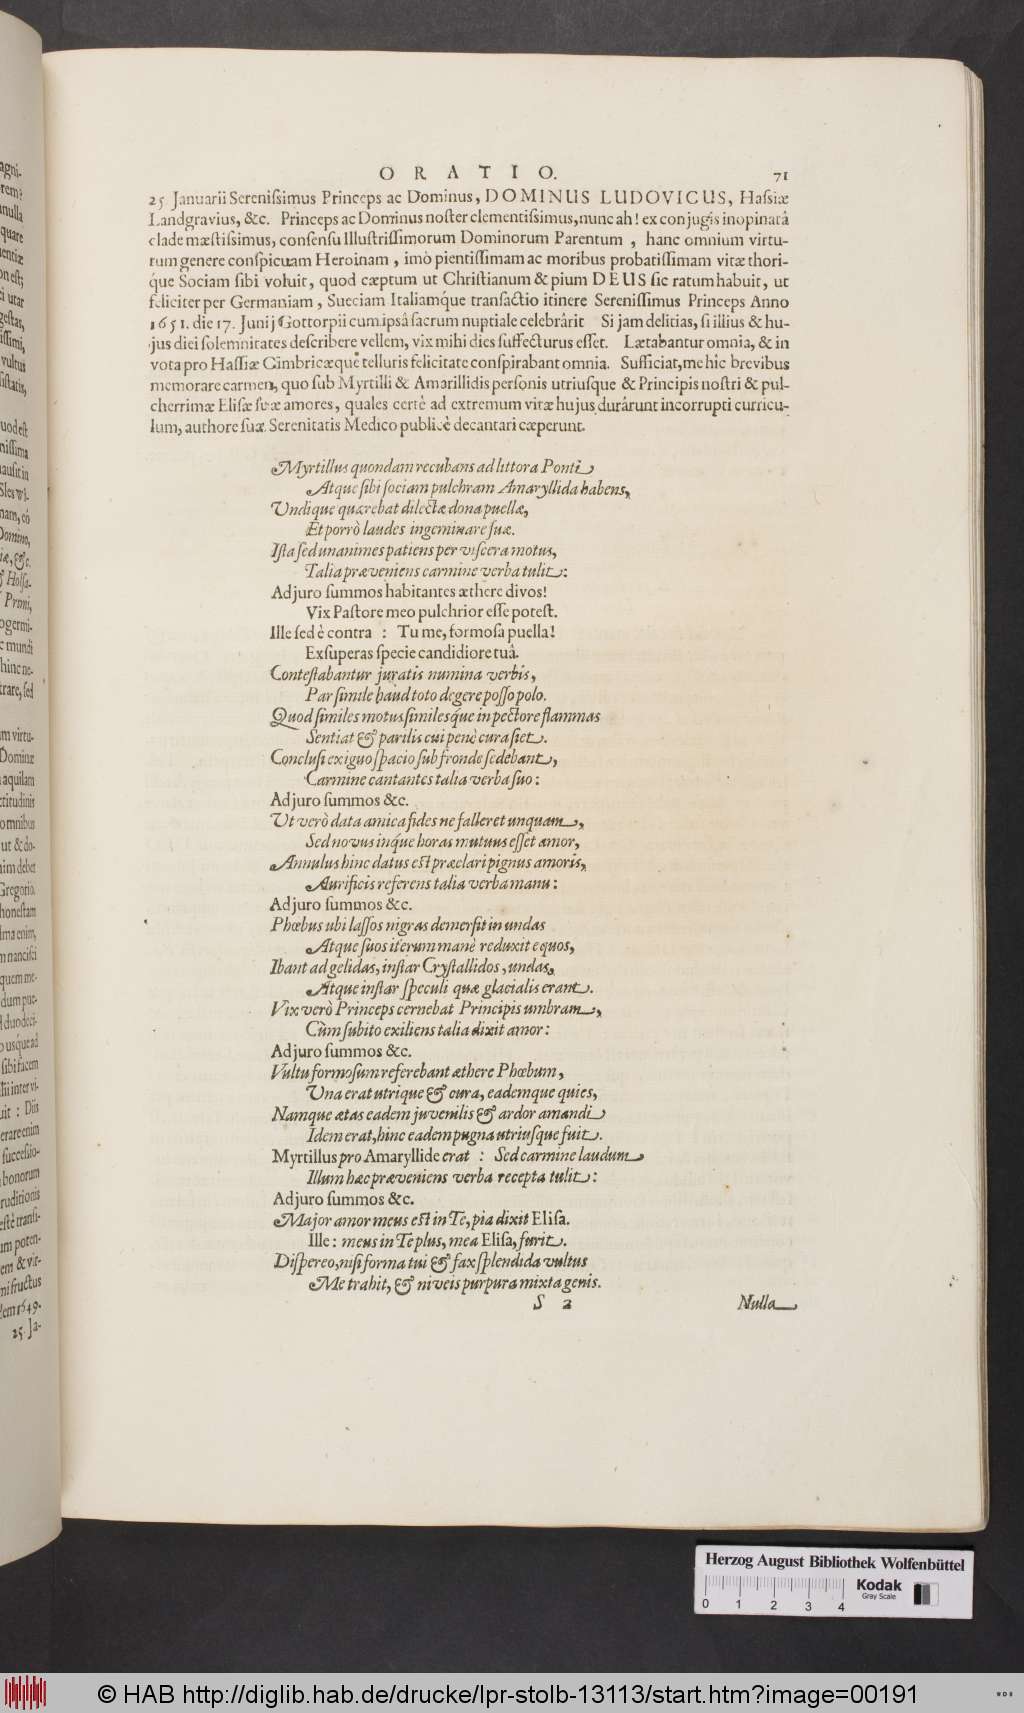 ORATIO. 71
25 Januarii Serenissimus Princeps ac Dominus, DOMINUS LUDOVICUS, Hassiæ
Landgravius, &c. Princeps ac Dominus noster clementissimus, nunc ah! ex conjugis inopinatâ
clade mæstissimus, consensu Illustrissimorum Dominorum Parentum, hanc omnium virtu-
tum genere conspicuam Heroinam, imò pientissimam ac moribus probatissimam vitæ thori-
q́ue Sociam sibi voluit, quod cæptum ut Christianum & pium DEUS sic ratum habuit, ut
feliciter per Germaniam, Sueciam Italiamq́ue transactio itinere Serenissimus Princeps Anno
1651. die 17. Junij Gottorpii cum ipsâ sacrum nuptiale celebrârit Si jam delitias, si illius & hu-
jus diei solemnitates describere vellem, vix mihi dies suffecturus esset. Lætabantur omnia, & in
vota pro Hassiæ Cimbricæque telluris felicitate conspirabant omnia. Sufficiat, me hic brevibus
memorare carmen, quo sub Myrtilli & Amarillidis personis utriusque & Principis nostri & pul-
cherrimæ Elisæ suæ amores, quales certè ad extremum vitæ hujus durârunt incorrupti curricu-
lum, authore suæ Serenitatis Medico publicè decantari cæperunt.
Myrtillus quondam recubans ad littora Ponti
Atque sibi sociam pulchram Amaryllida habens,
Undique quærebat dilectæ dona puellæ,
Et porrò laudes ingeminare suæ.
Ista sed unanimes patiens per viscera motus,
Talia præveniens carmine verba tulit:
Adjuro summos habitantes æthere divos!
Vix Pastore meo pulchrior esse potest.
Ille sed è contra : Tu me, formosa puella!
Exsuperas specie candidiore tuâ.
Contestabantur juratis numina verbis,
Par simile haud toto degere posso polo.
Quod similes motus similesq́ue in pectore flammas
Sentiat & parilis cui penè cura siet.
Conclusi exiguo spacio sub fronde sedebant,
Carmine cantantes talia verba suo:
Adjuro summos &c.
Ut verò data amica fides ne falleret unquam,
Sed novus inq́ue horas mutuus esset amor,
Annulus hinc datus est præclari pignus amoris,
Aurificis referens talia verba manu:
Adjuro summos &c.
Phœbus ubi lassos nigras demersit in undas
Atque suos iterum manè reduxit equos,
Ibant ad gelidas, instar Crystallidos, undas,
Atque instar speculi quæ glacialis erant.
Vix verò Princeps cernebat Principis umbram,
Cùm subito exiliens talia dixit amor:
Adjuro summos &c.
Vultu formosum referebant æthere Phœbum,
Una erat utrique & cura, eademque quies,
Namque ætas eadem juvenilis & ardor amandi
Idem erat, hinc eadem pugna utriusque fuit.
Myrtillus pro Amaryllide erat : Sed carmine laudum
Illum hæc præveniens verba recepta tulit:
Adjuro summos &c.
Major amor meus est in Te, pia dixit Elisa.
Ille: meus in Te plus, mea Elisa, furit.
Dispereo, nisi forma tui & fax splendida vultus
Me trahit, & niveis purpura mixta genis.
S 2 Nulla
Herzog August Bibliothek Wolfenbüttel
0 1 2 3 4
Kodak
Gray Scale
© HAB http://diglib.hab.de/drucke/lpr-stolb-13113/start.htm?image=00191